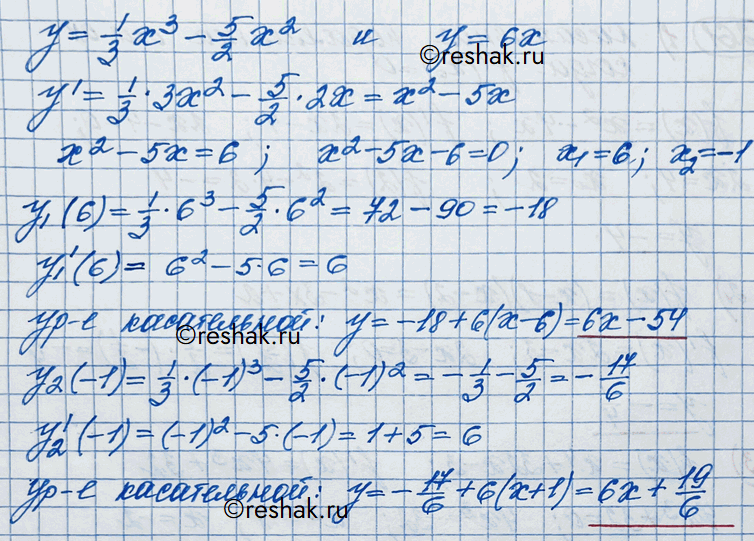 y = 1/3 x³ − 5/2 x² и y = 6x
©reshak.ru
y' = 1/3 · 3x² − 5/2 · 2x = x² − 5x
x² − 5x = 6 ; x² − 5x − 6 = 0; x₁ = 6; x₂ = −1
y₁(6) = 1/3 · 6³ − 5/2 · 6² = 72 − 90 = −18
y₁'(6) = 6² − 5·6 = 6
ур-е касательной: y = −18 + 6(x−6) = 6x − 54
©reshak.ru
y₂(−1) = 1/3 · (−1)³ − 5/2 · (−1)² = −1/3 − 5/2 = −17/6
y₂'(−1) = (−1)² − 5·(−1) = 1 + 5 = 6
ур-е касательной: y = −17/6 + 6(x+1) = 6x + 19/6
©reshak.ru